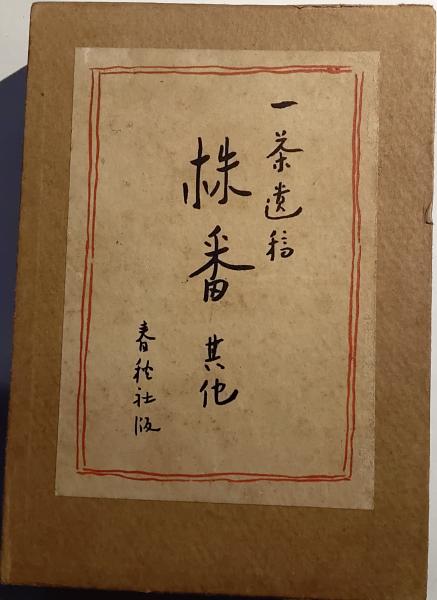 一茶遺稿
株番 其他
春秋社版